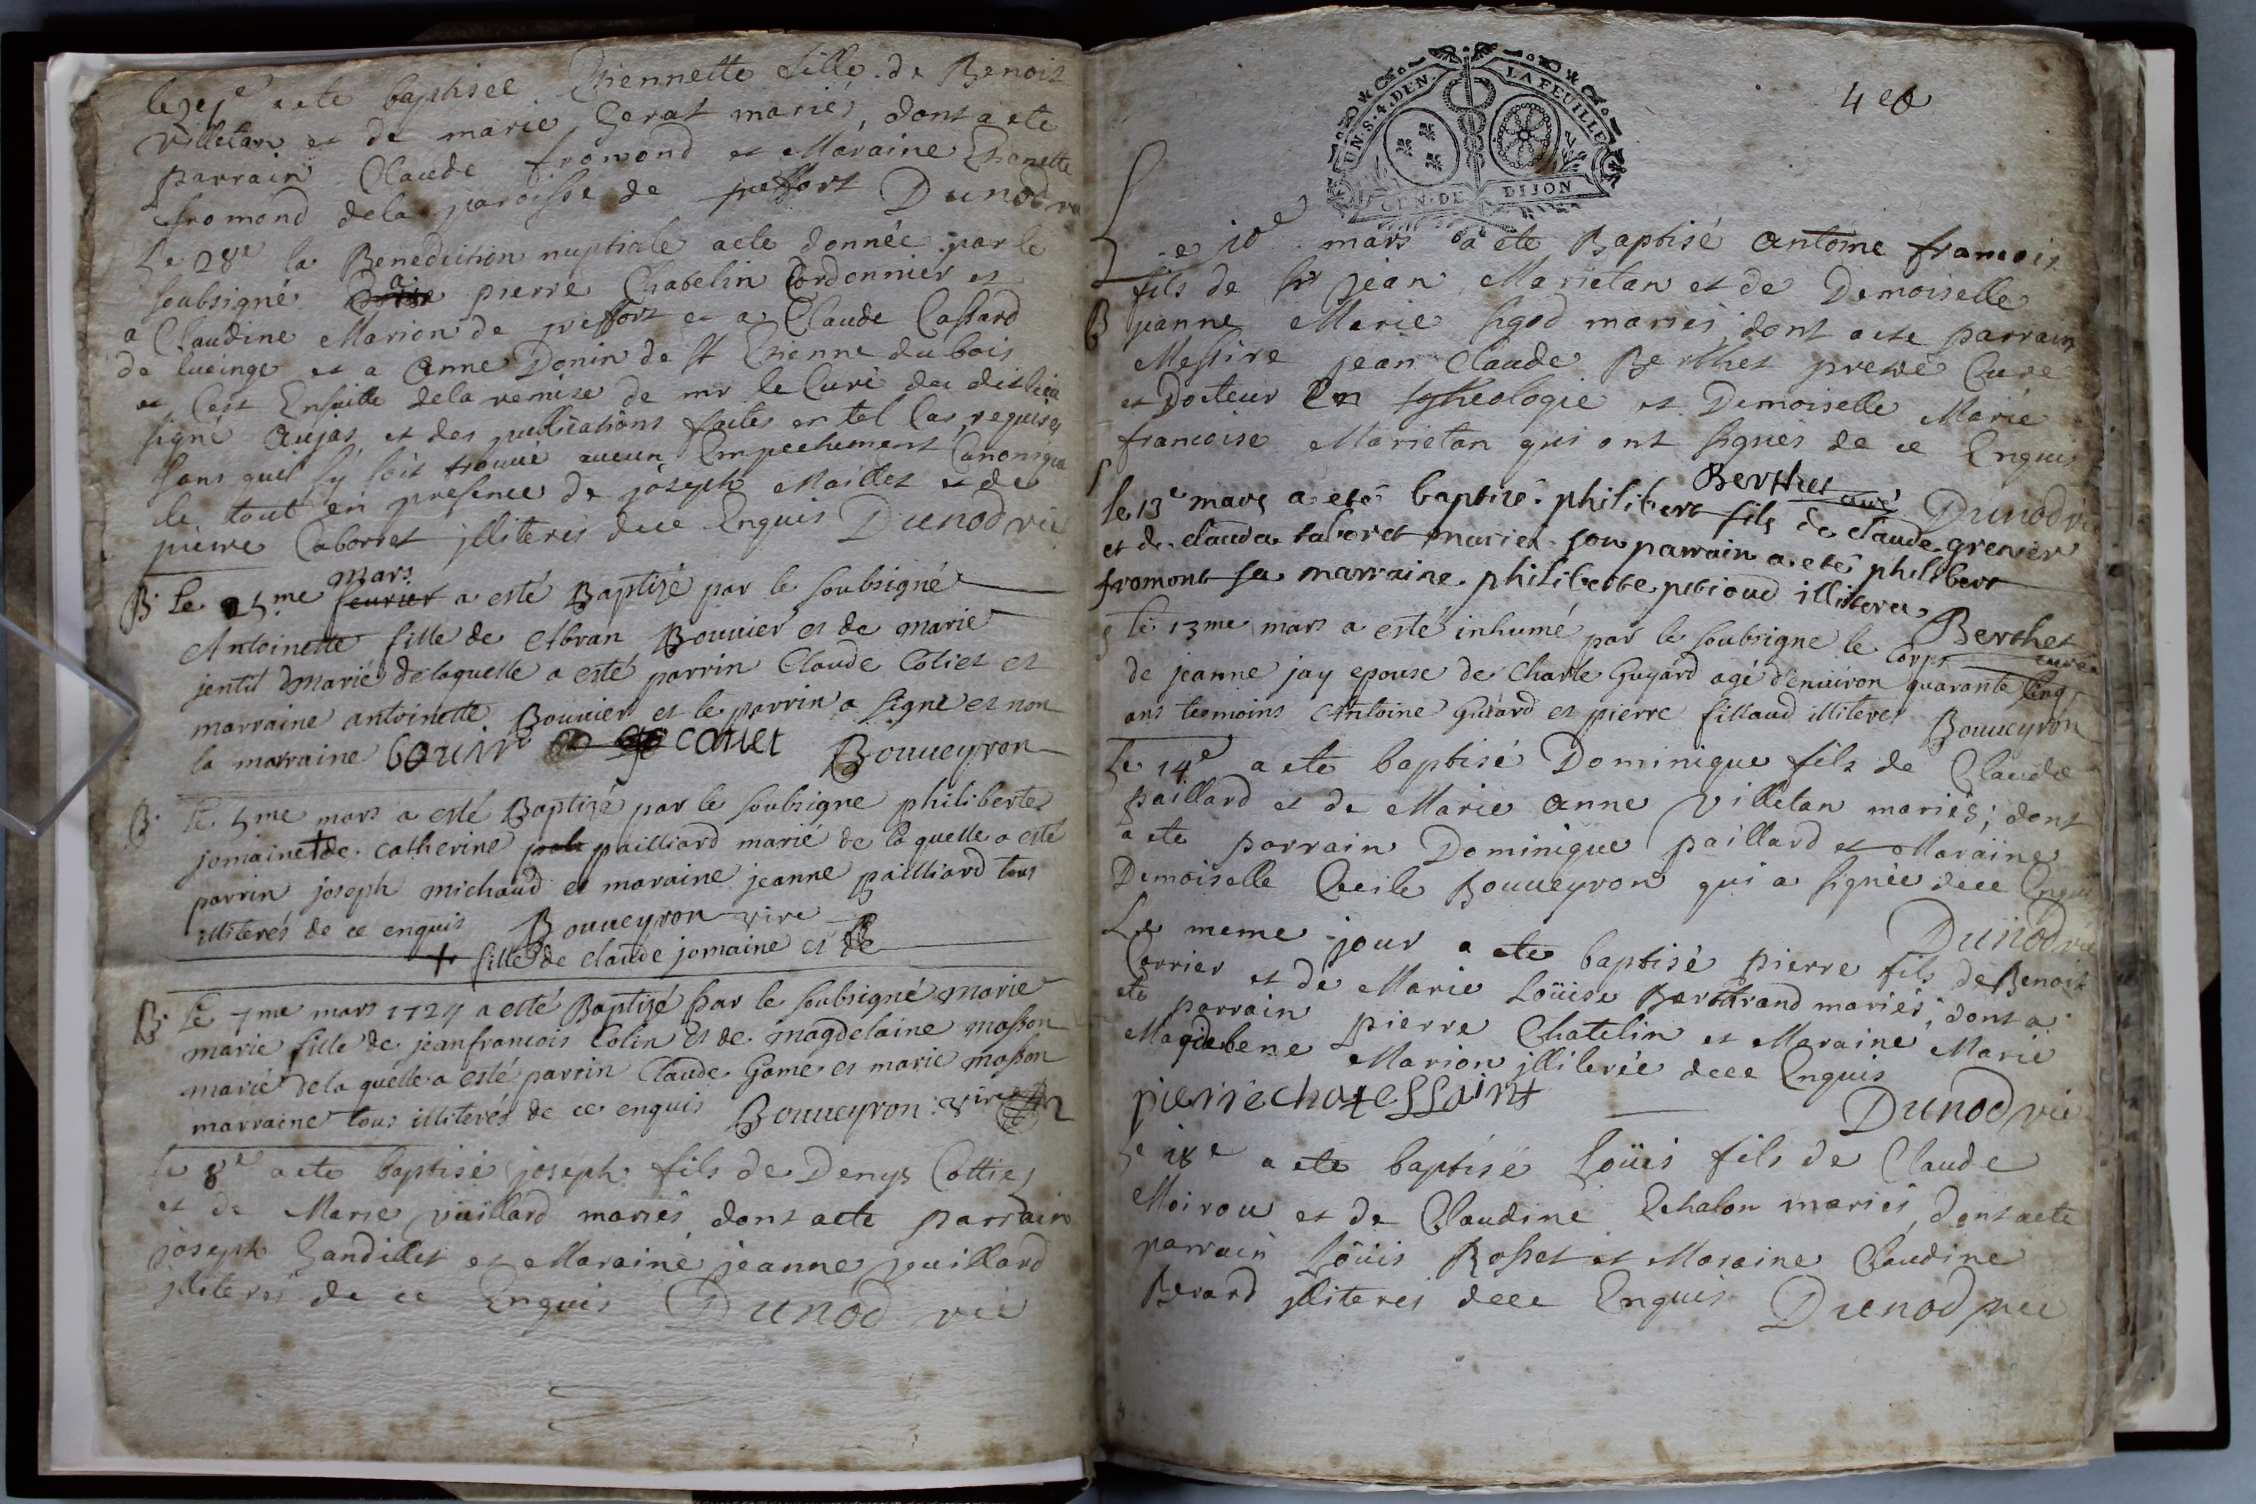 a ete baptisee Etiennette fille de Benoit
Villetan et de marie Gerat mariés, dont a ete
parrain Claude fromond et Maraine Etienette
fromond dela paroisse de Dunod
Le 28e la Benediction nuptiale a ete donnée par le
soubsigné a pierre Chatelin Cordonnier et
a Claudine Marion de et a Claude Cassard
de lucinge et a Anne Donin de St Etienne du bois
et c'est Ensuitte dela remise de mr le Curé des dits lieu
signé Aujas, et des publications faites en tel Cas requises
sans quil s'y soit trouué aucun Empechement Canonique
le tout en presence de joseph Maillet et de
pierre Caborret jlliterés dece Enquis Dunod vic
B. Le 5me mars feurier a esté Baptizé par le soubsigné
Antoinette fille de Abran Bouuier et de marie
jentit marié delaquelle a esté parrin Claude Coliet et
marraine antoinette Bouuier et le parrin a signe et non
la marraine Bouueyron
B. Le 5me mars a esté Baptizé par le soubsigne philiberte
jomaine + de catherine pailliard marié de laquelle a esté
parrin joseph michaud et maraine jeanne pailliard tous
illiterés de ce enquis Bouueyron vire
+ fille de claude jomaine et de
B. Le 7me mars 1727 a esté Baptizé par le soubsigné marie
marie fille de jeanfrancois Colin et de magdelaine masson
marié dela quelle a esté parrin Claude Gamé et marie masson
marraine tous illiterés de ce enquis Bouueyron vire
Le 8e a ete baptisé joseph fils de Denys Cottier
et de Marie vuillard mariés dont a ete parrain
joseph Gandillet et Maraine jeanne vuillard
jlliterés de ce Enquis Dunod vic
UN.S.4.DEN. LA FEUILLE
GEN.DE DIJON
4
Le 10e mars a ete Baptisé Antoine francois
fils de Sr jean Marietan et de Demoiselle
B jeanne Marie sigod mariés, dont a ete parrain
Messire jean Claude Berthet pretre Curé
et Docteur En theologie et Demoiselle Marie
francoise Marietan qui ont signés de ce Enquis
Berthet curé Dunod vic
Le 13e mars a eté baptizé philibert fils de claude grenier
et de clauda taboret mariés son parrain a eté philibert
fromont sa marraine philiberte petioud illiteres
Berthet curé
S Le 13me mars a esté inhumé par le soubsigne le Corps
de jeanne jay epouse de Charle Guyard agé d'enuiron quarante cinq
ans temoins Antoine Guiard et pierre fillaud illiteres Bouueyron
Le 14e a ete baptisé Dominique fils de Claude
paillard et de Marie Anne Villetan mariés; dont
a ete parrain Dominique paillard et Maraine
Demoiselle Cecile Bouueyron qui a signée dece Enquis
Dunod vic
Le meme jour a ete baptisé pierre fils de Benoit
Carrier et de Marie Loüise Berthrand mariés, dont a
ete parrain pierre Chatelin et Maraine Marie
Magdelene Marion jlliterée dece Enquis
Dunod vic
Le 18e a ete baptisé Loüis fils de Claude
Moirou et de Claudine Echalon mariés, dont a ete
parrain Loüis Rosset et Maraine Claudine
Berard jlliterés dece Enquis Dunod vic